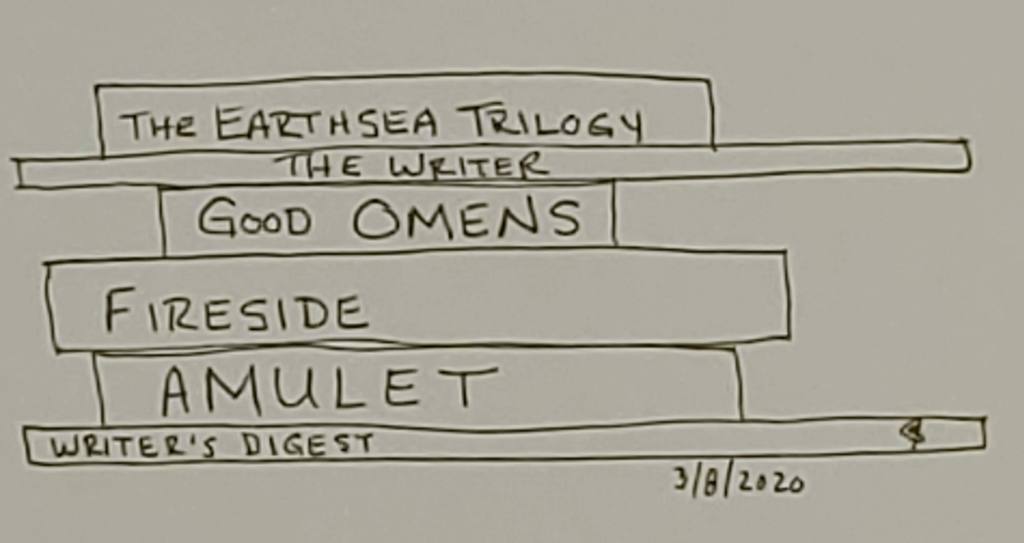 THE EARTHSEA TRILOGY
THE WRITER
GOOD OMENS
FIRESIDE
AMULET
WRITER'S DIGEST
3/8/2020